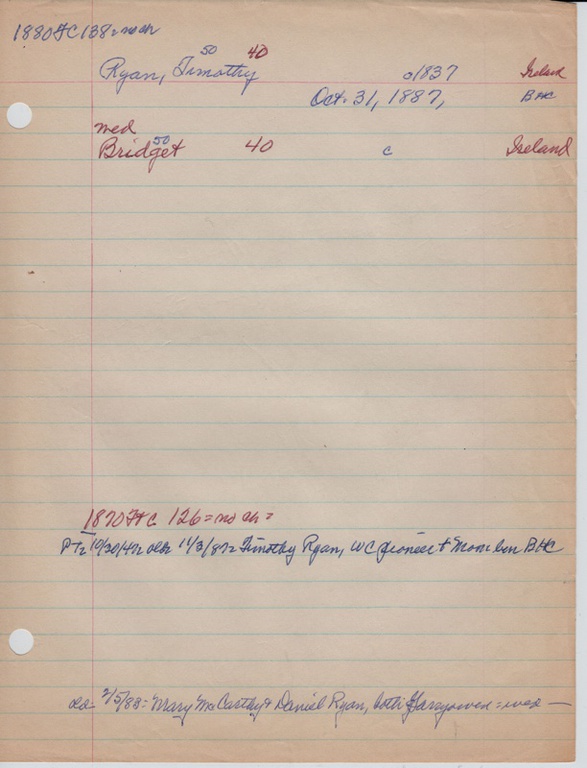 1880 FC 138 = no ch
50 40
Ryan, Timothy c1837 Ireland
Oct. 31, 1887, BHC
med
50
Bridget 40 c Ireland
1870 FC 126 = no ch =
11/3/87 = Timothy Ryan, WC pioneer & Mon bur BHC
2/5/88 = Mary McCarthy & Daniel Ryan, both Garryowen = wed —